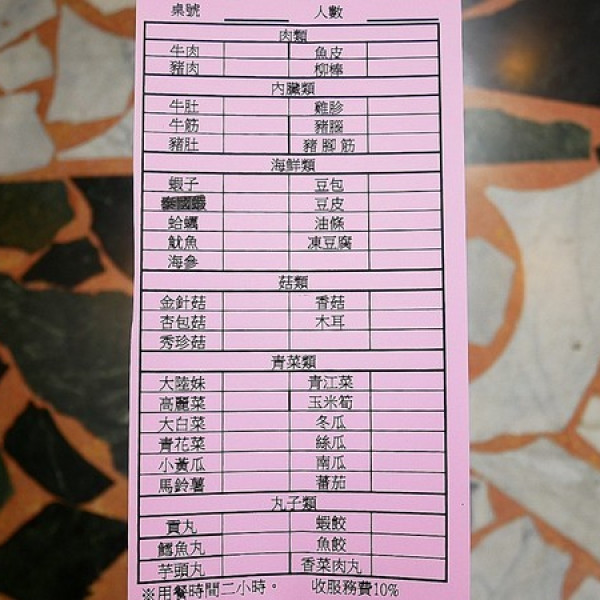 桌號 人數
肉類
牛肉 魚皮
豬肉 柳棒
內臟類
牛肚 雞胗
牛筋 豬腦
豬肚 豬腳筋
海鮮類
蝦子 豆包
泰國蝦 豆皮
蛤蠣 油條
魷魚 凍豆腐
海參
菇類
金針菇 香菇
杏包菇 木耳
秀珍菇
青菜類
大陸妹 青江菜
高麗菜 玉米筍
大白菜 冬瓜
青花菜 絲瓜
小黃瓜 南瓜
馬鈴薯 蕃茄
丸子類
貢丸 蝦餃
鱈魚丸 魚餃
芋頭丸 香菜肉丸
※用餐時間二小時。 收服務費10%